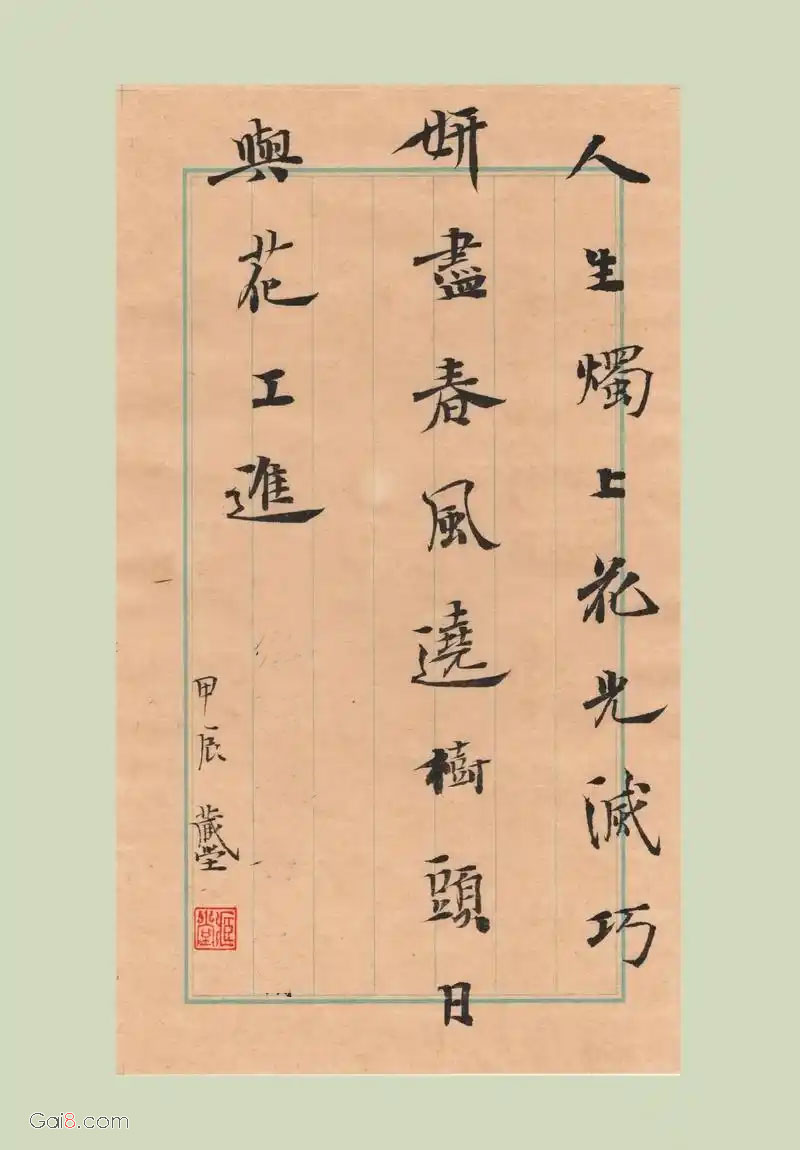 人生燭上花光滅巧
妍盡春風遶樹頭日
與花工進
甲辰 藏堂
藏堂
Gai8.com